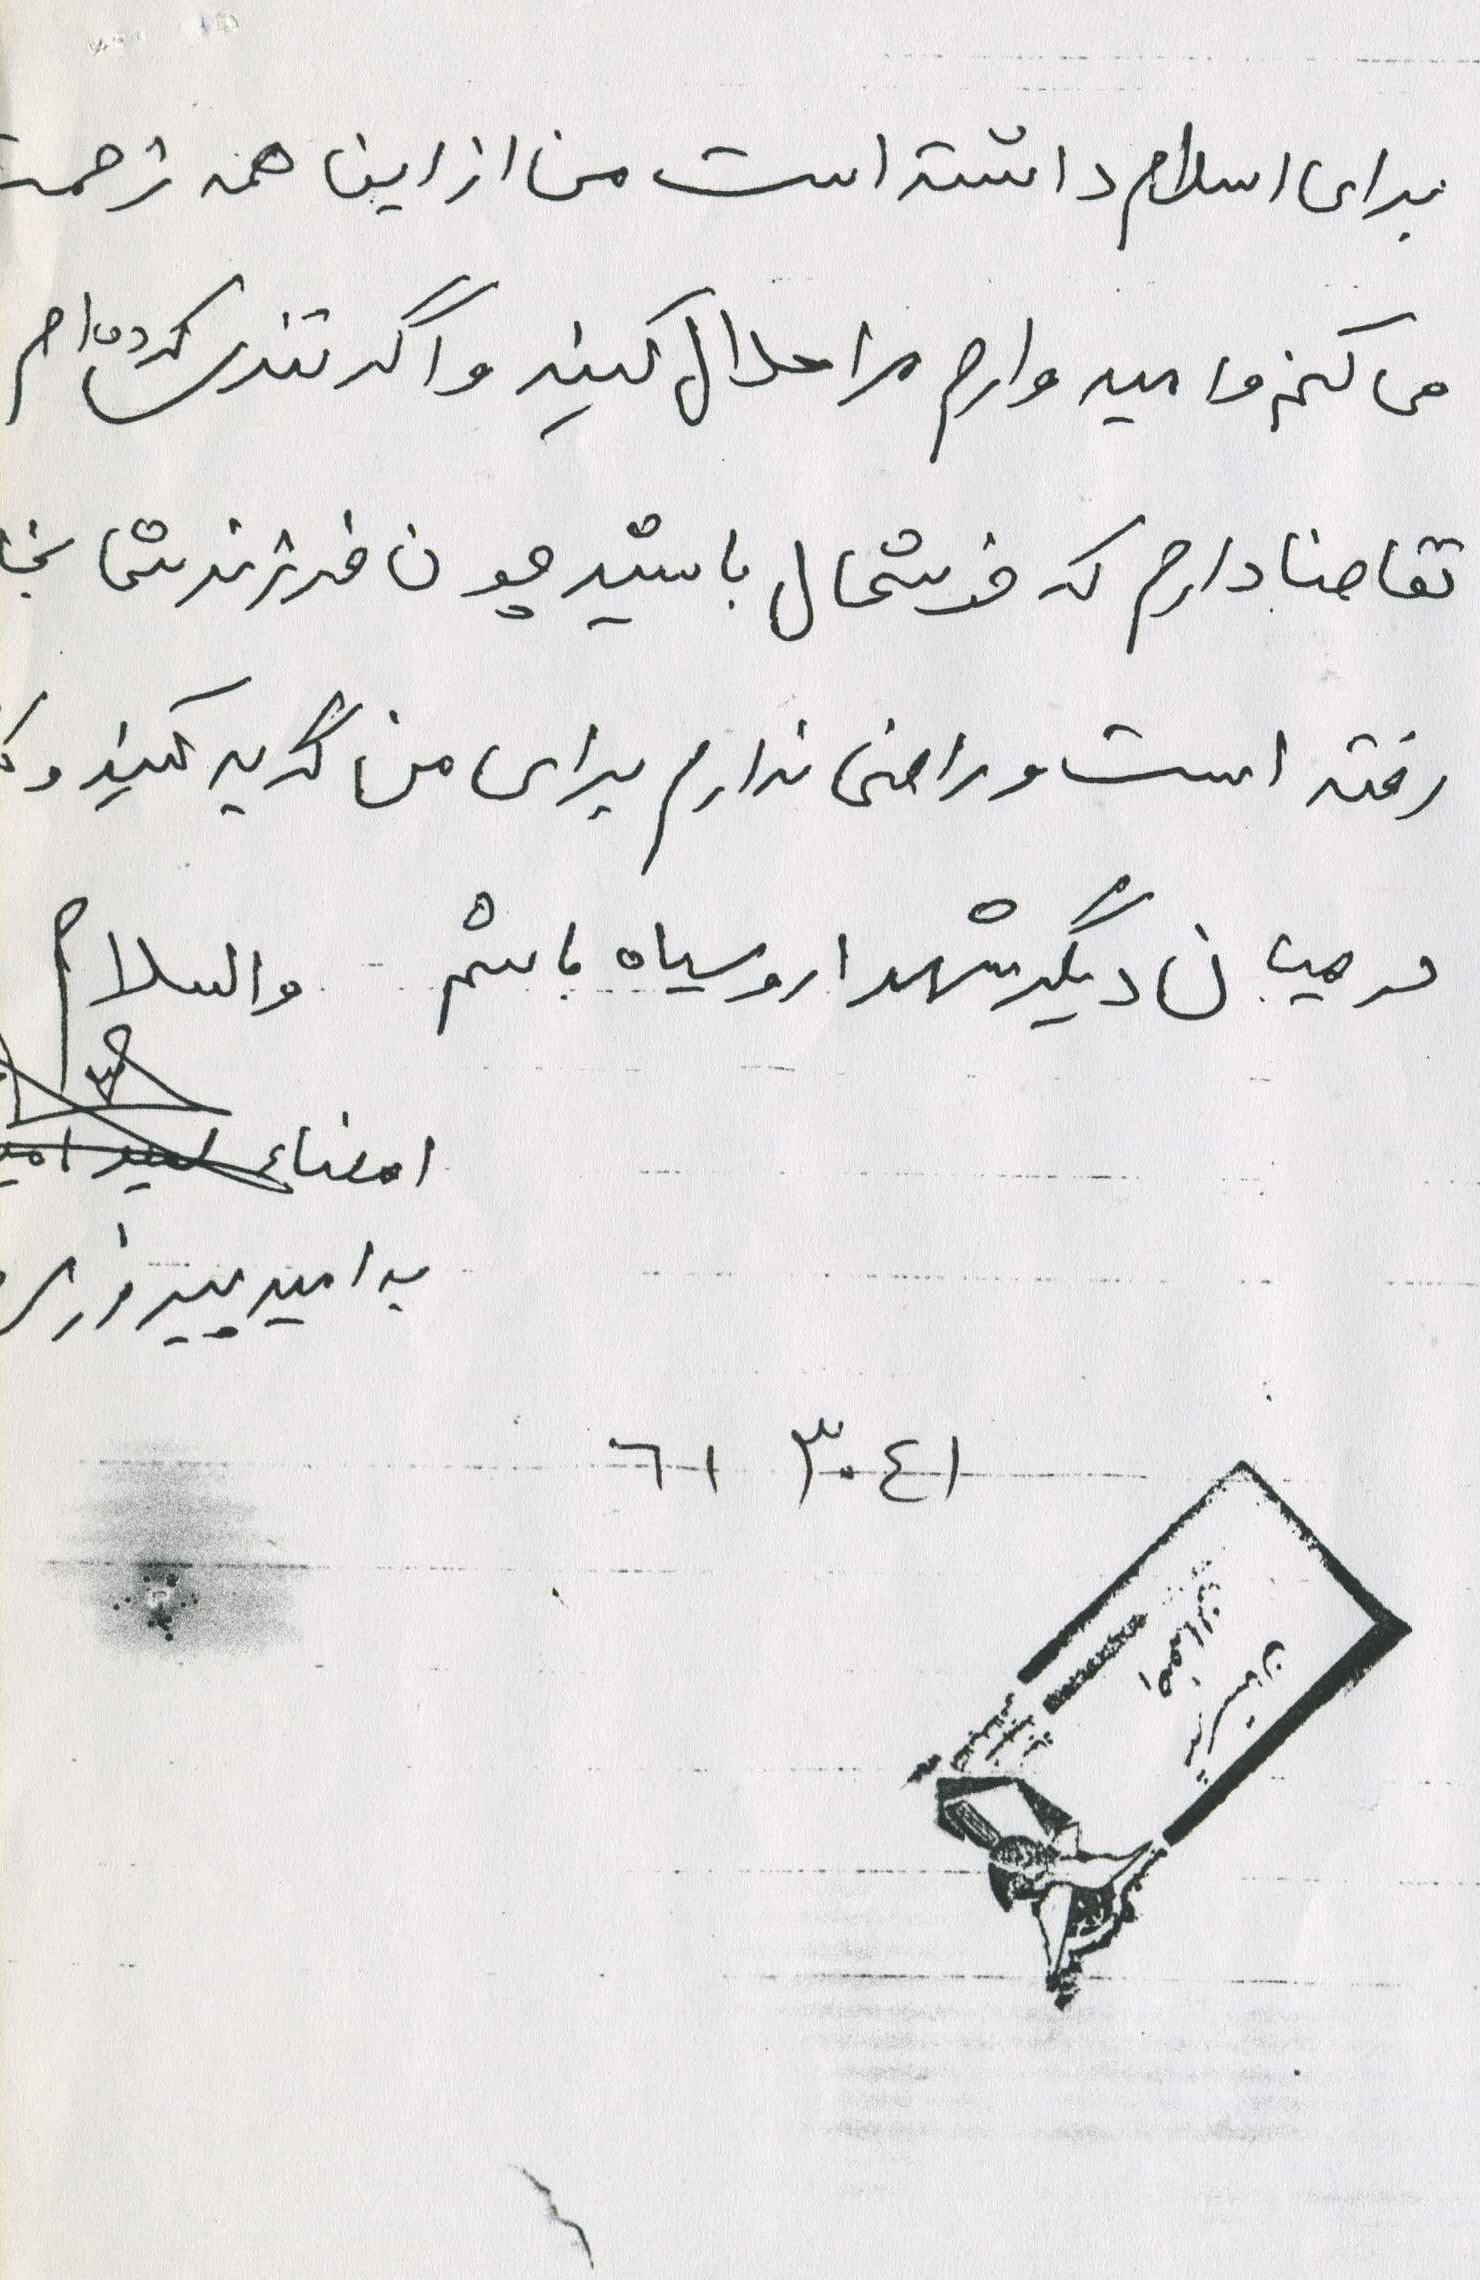 برای اسلام داشته است من از این همه زحمت
می کنم و امید وارم مرا حلال کنید و اگر تندی کرده ام
تقاضا دارم که خوشحال باشید چون فرزند شما
رفته است و راضی ندارم برای من گریه کنید و
در میان دیگر شهدا رو سیاه باشم والسلام
امضاء سید
به امید پیروزی
٣٠٤١ ٦١